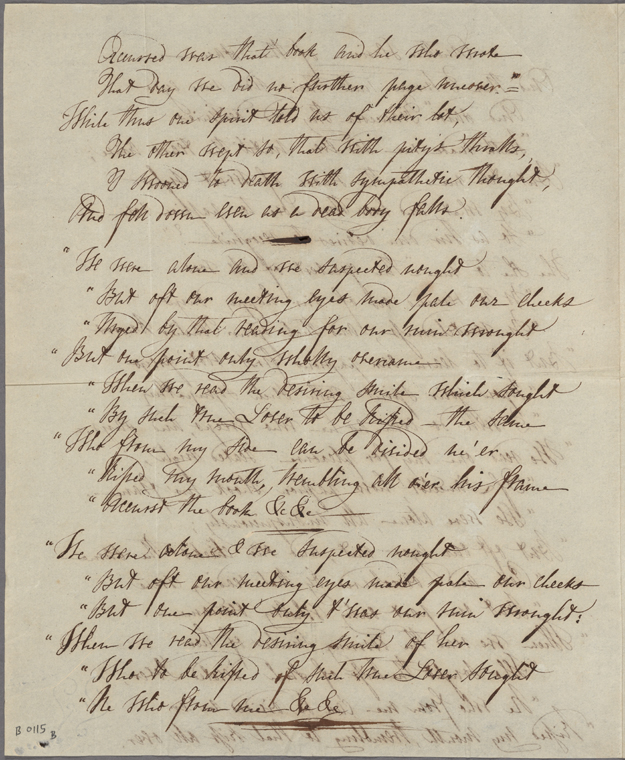 Accursed was that book and he who wrote
That day we did no further page uncover."=
While thus one spirit told us of their lot,
The other wept so, that with pity's thralls,
I swooned to death with sympathetic thought,
And fell down even as a dead body falls.
"We were alone and we suspected nought
"But oft our meeting eyes made pale our cheeks
"Urged by that reading for our ruin wrought
"But one point only wholly overcame
"When we read the desiring smile which sought
"By such true Lover to be kissed – the same
"Who from my side can be divided ne'er
"Kissed my mouth, trembling all o'er his frame
"Accurst the book &c &c
"We were alone & we suspected nought
"But oft our meeting eyes made pale our cheeks
"But one point only t'was our ruin wrought:
"When we read the desiring smile of her
"Who to be kissed of such true Lover sought
"He who from me &c &c
B 0115
B